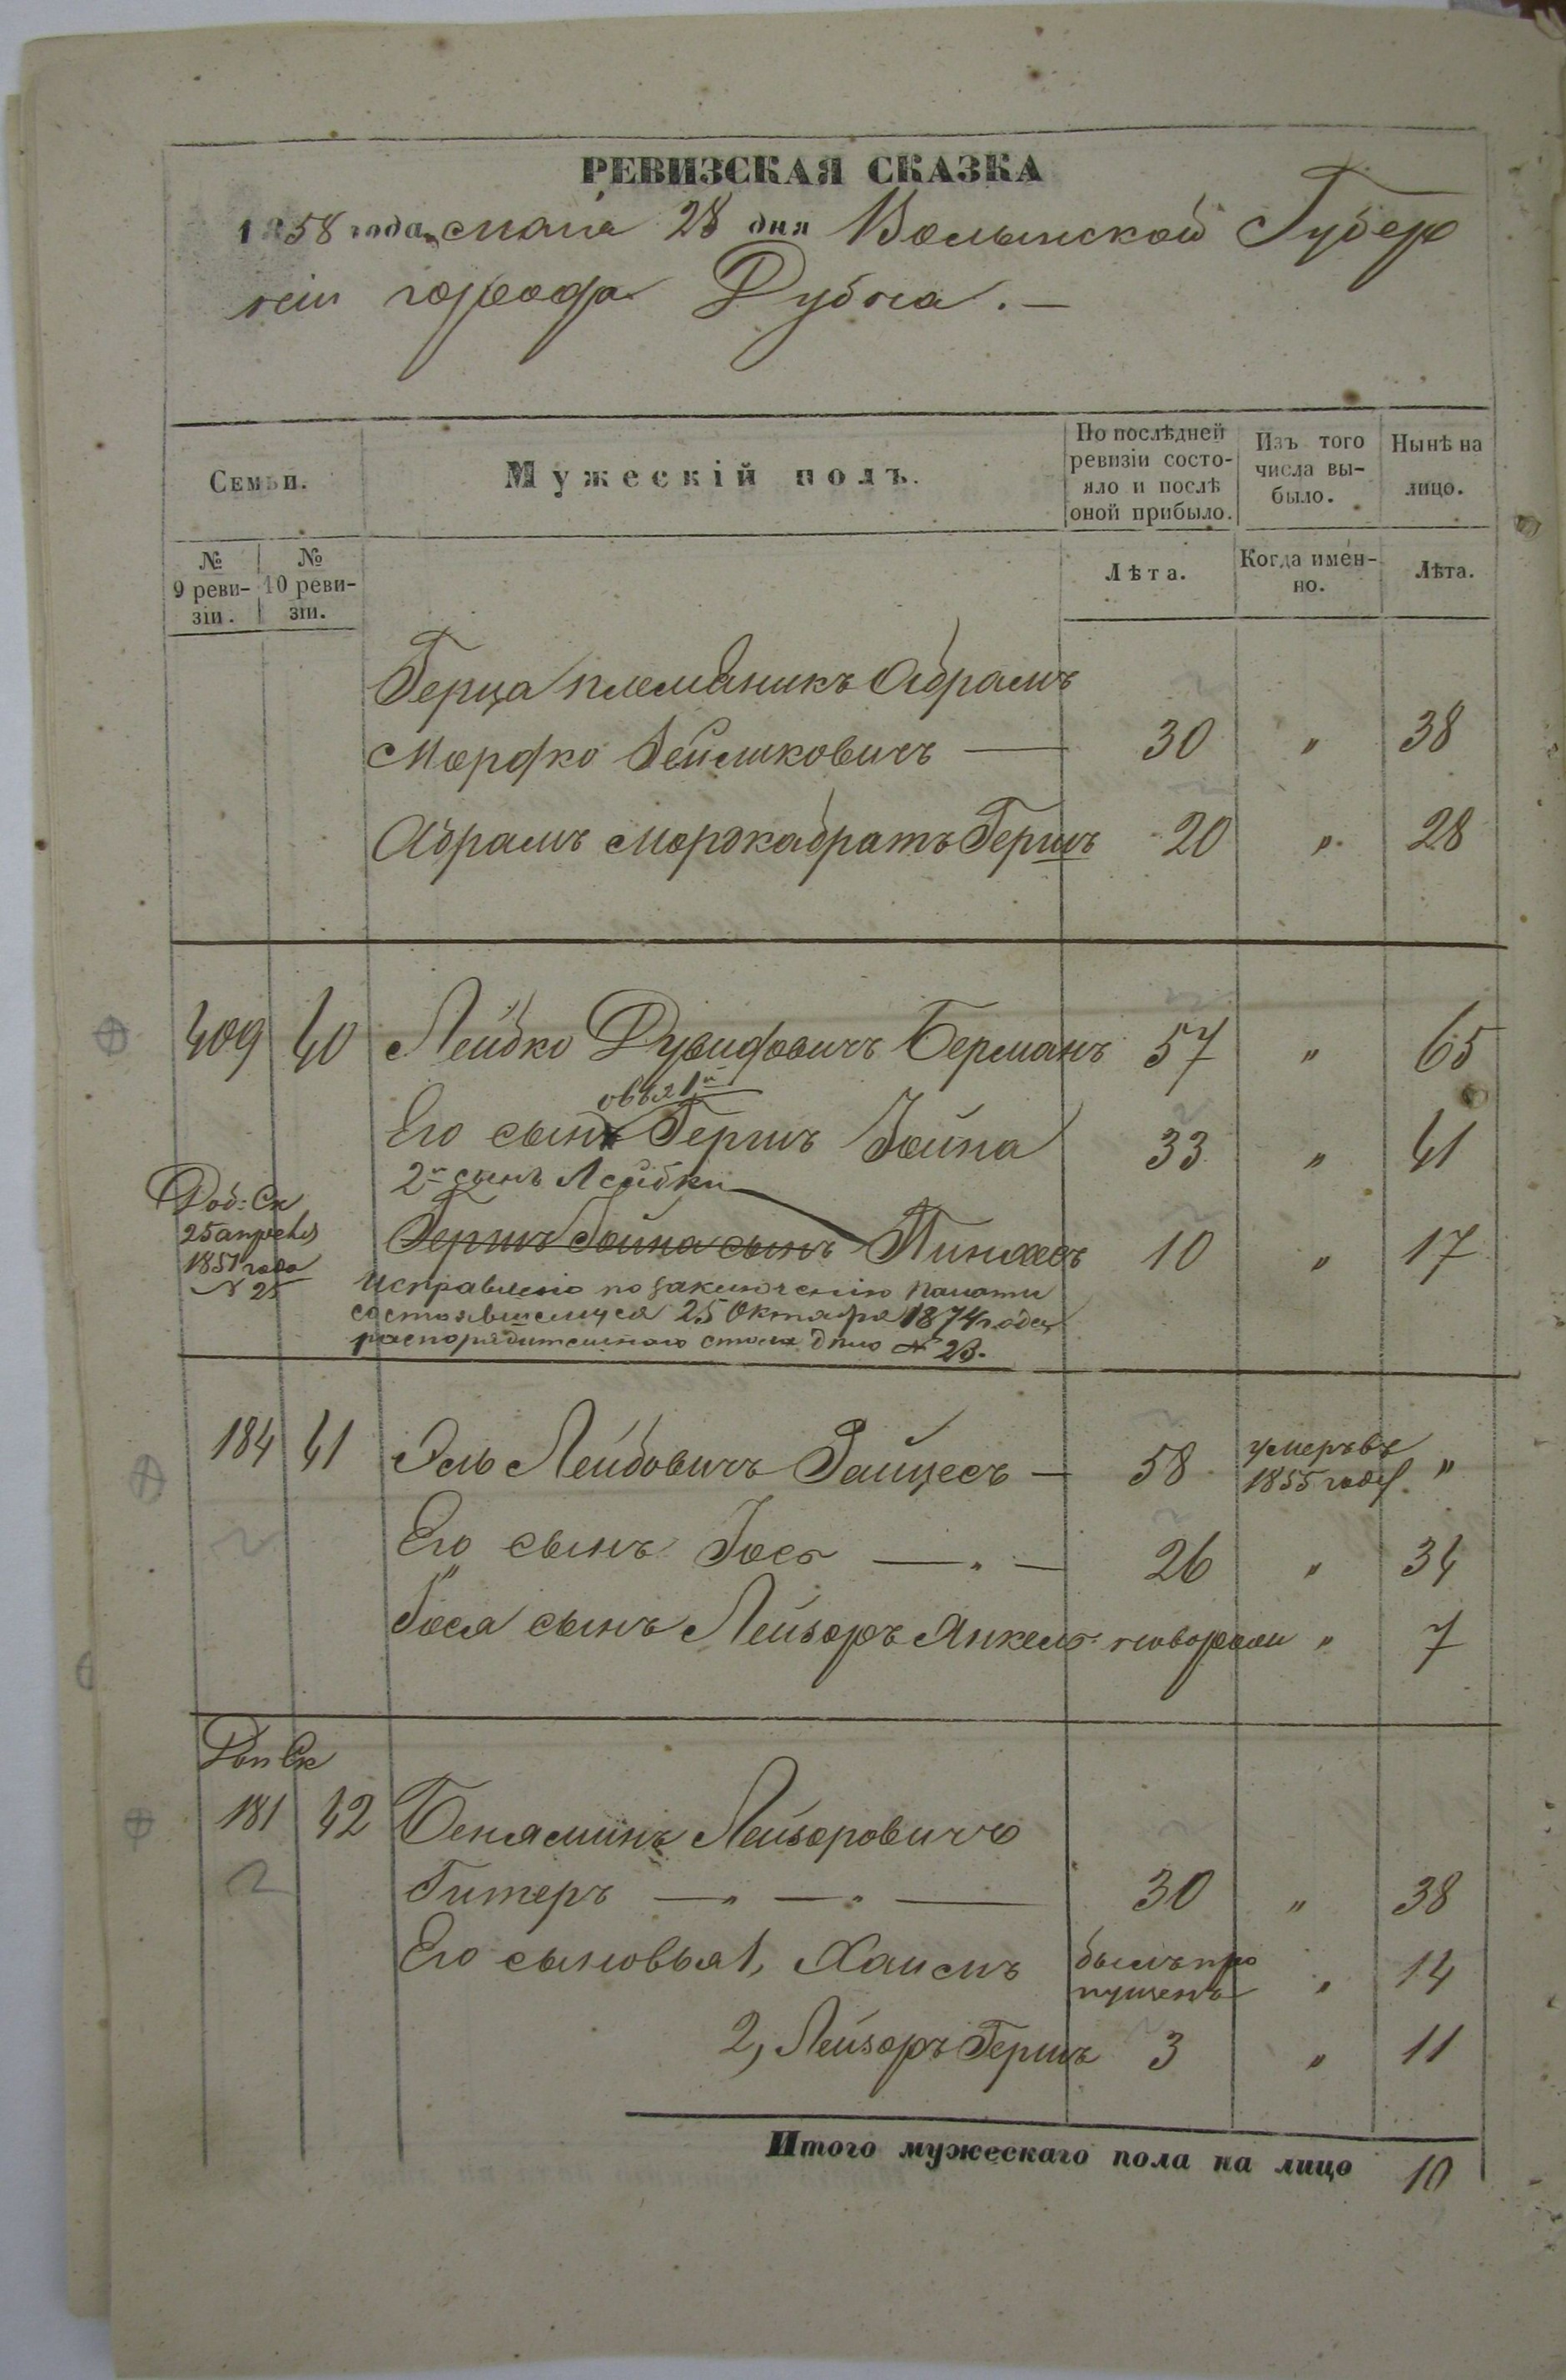 РЕВИЗСКАЯ СКАЗКА
1858 года, мая 28 дня Волынской Губер
ніи города Дубна. —
Семьи.
Мужескій полъ.
По послѣдней ревизіи состо-
яло и послѣ оной прибыло.
Изъ того числа вы-
было.
Нынѣ на лицо.
№ 9 реви-
зіи.
№ 10 реви-
зіи.
Лѣта.
Когда имен-
но.
Лѣта.
Герца племяникъ Абрамъ
Мордко Іейликовичъ — 30 " 38
Абрамъ Мордка братъ Гершъ 20 " 28
409 40 Лейбко Дувидовичъ Берманъ 57 " 65
1й
Его сынъ Гершъ Іойна 33 " 41
2й сынъ Лейбки
Доб: Ск
25 апреля
1851 года
№ 25
Гершъ Іойна сынъ Пинхасъ 10 " 17
Исправлено по заключенію Палаты
состоявшемуся 25 Октября 1874 года
распорядительнаго стола дѣло № 23.
184 41 Эль Лейбовичъ Зайцесъ — 58 умеръ въ 1855 году. "
Его сынъ Іось — 26 " 34
Іося сынъ Лейзоръ Янкель новорожд " 7
Доп Ск
181 42 Беняминъ Лейзоровичъ
Гитеръ — " — " — 30 " 38
Его сыновья 1, Хаимъ былъ про
пущенъ " 14
2, Лейзоръ Гершъ 3 " 11
Итого мужескаго пола на лицо 10